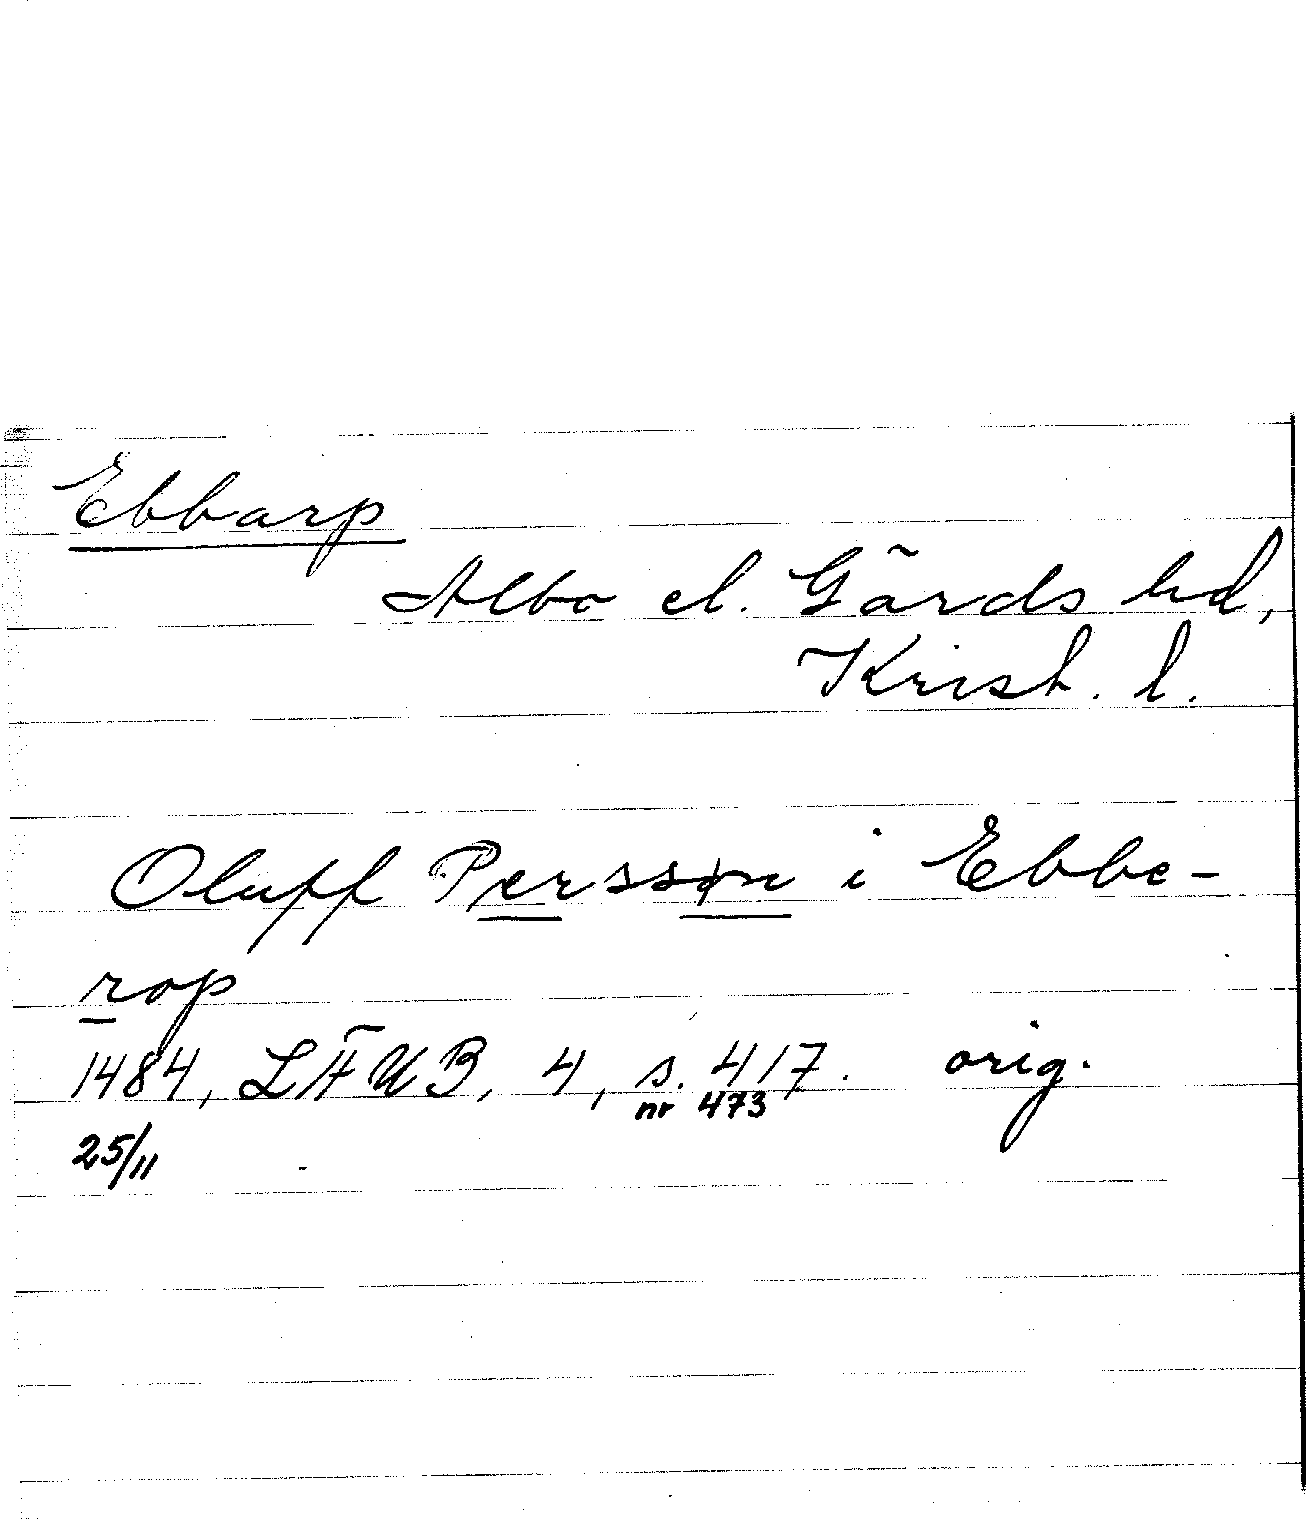 Ebbarp
Albo el. Gärds hd,
Krist. l.
Oluff Perssøn i Ebbe-
rop
1484, LÄUB, 4, s. 417. orig.
nr 473
25/11